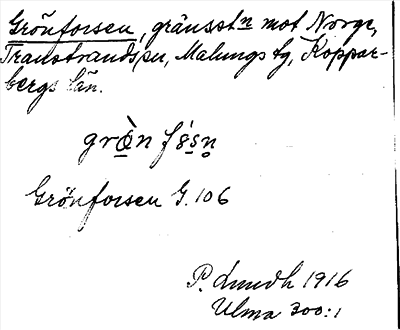 Grönforsen, gränsstn mot Norge,
Transtrands sn, Malungs tg, Koppar-
bergs län.
grœ̀n fo̊sn
Grönforsen G. 106
P. Lundh 1916
Ulma 300:1